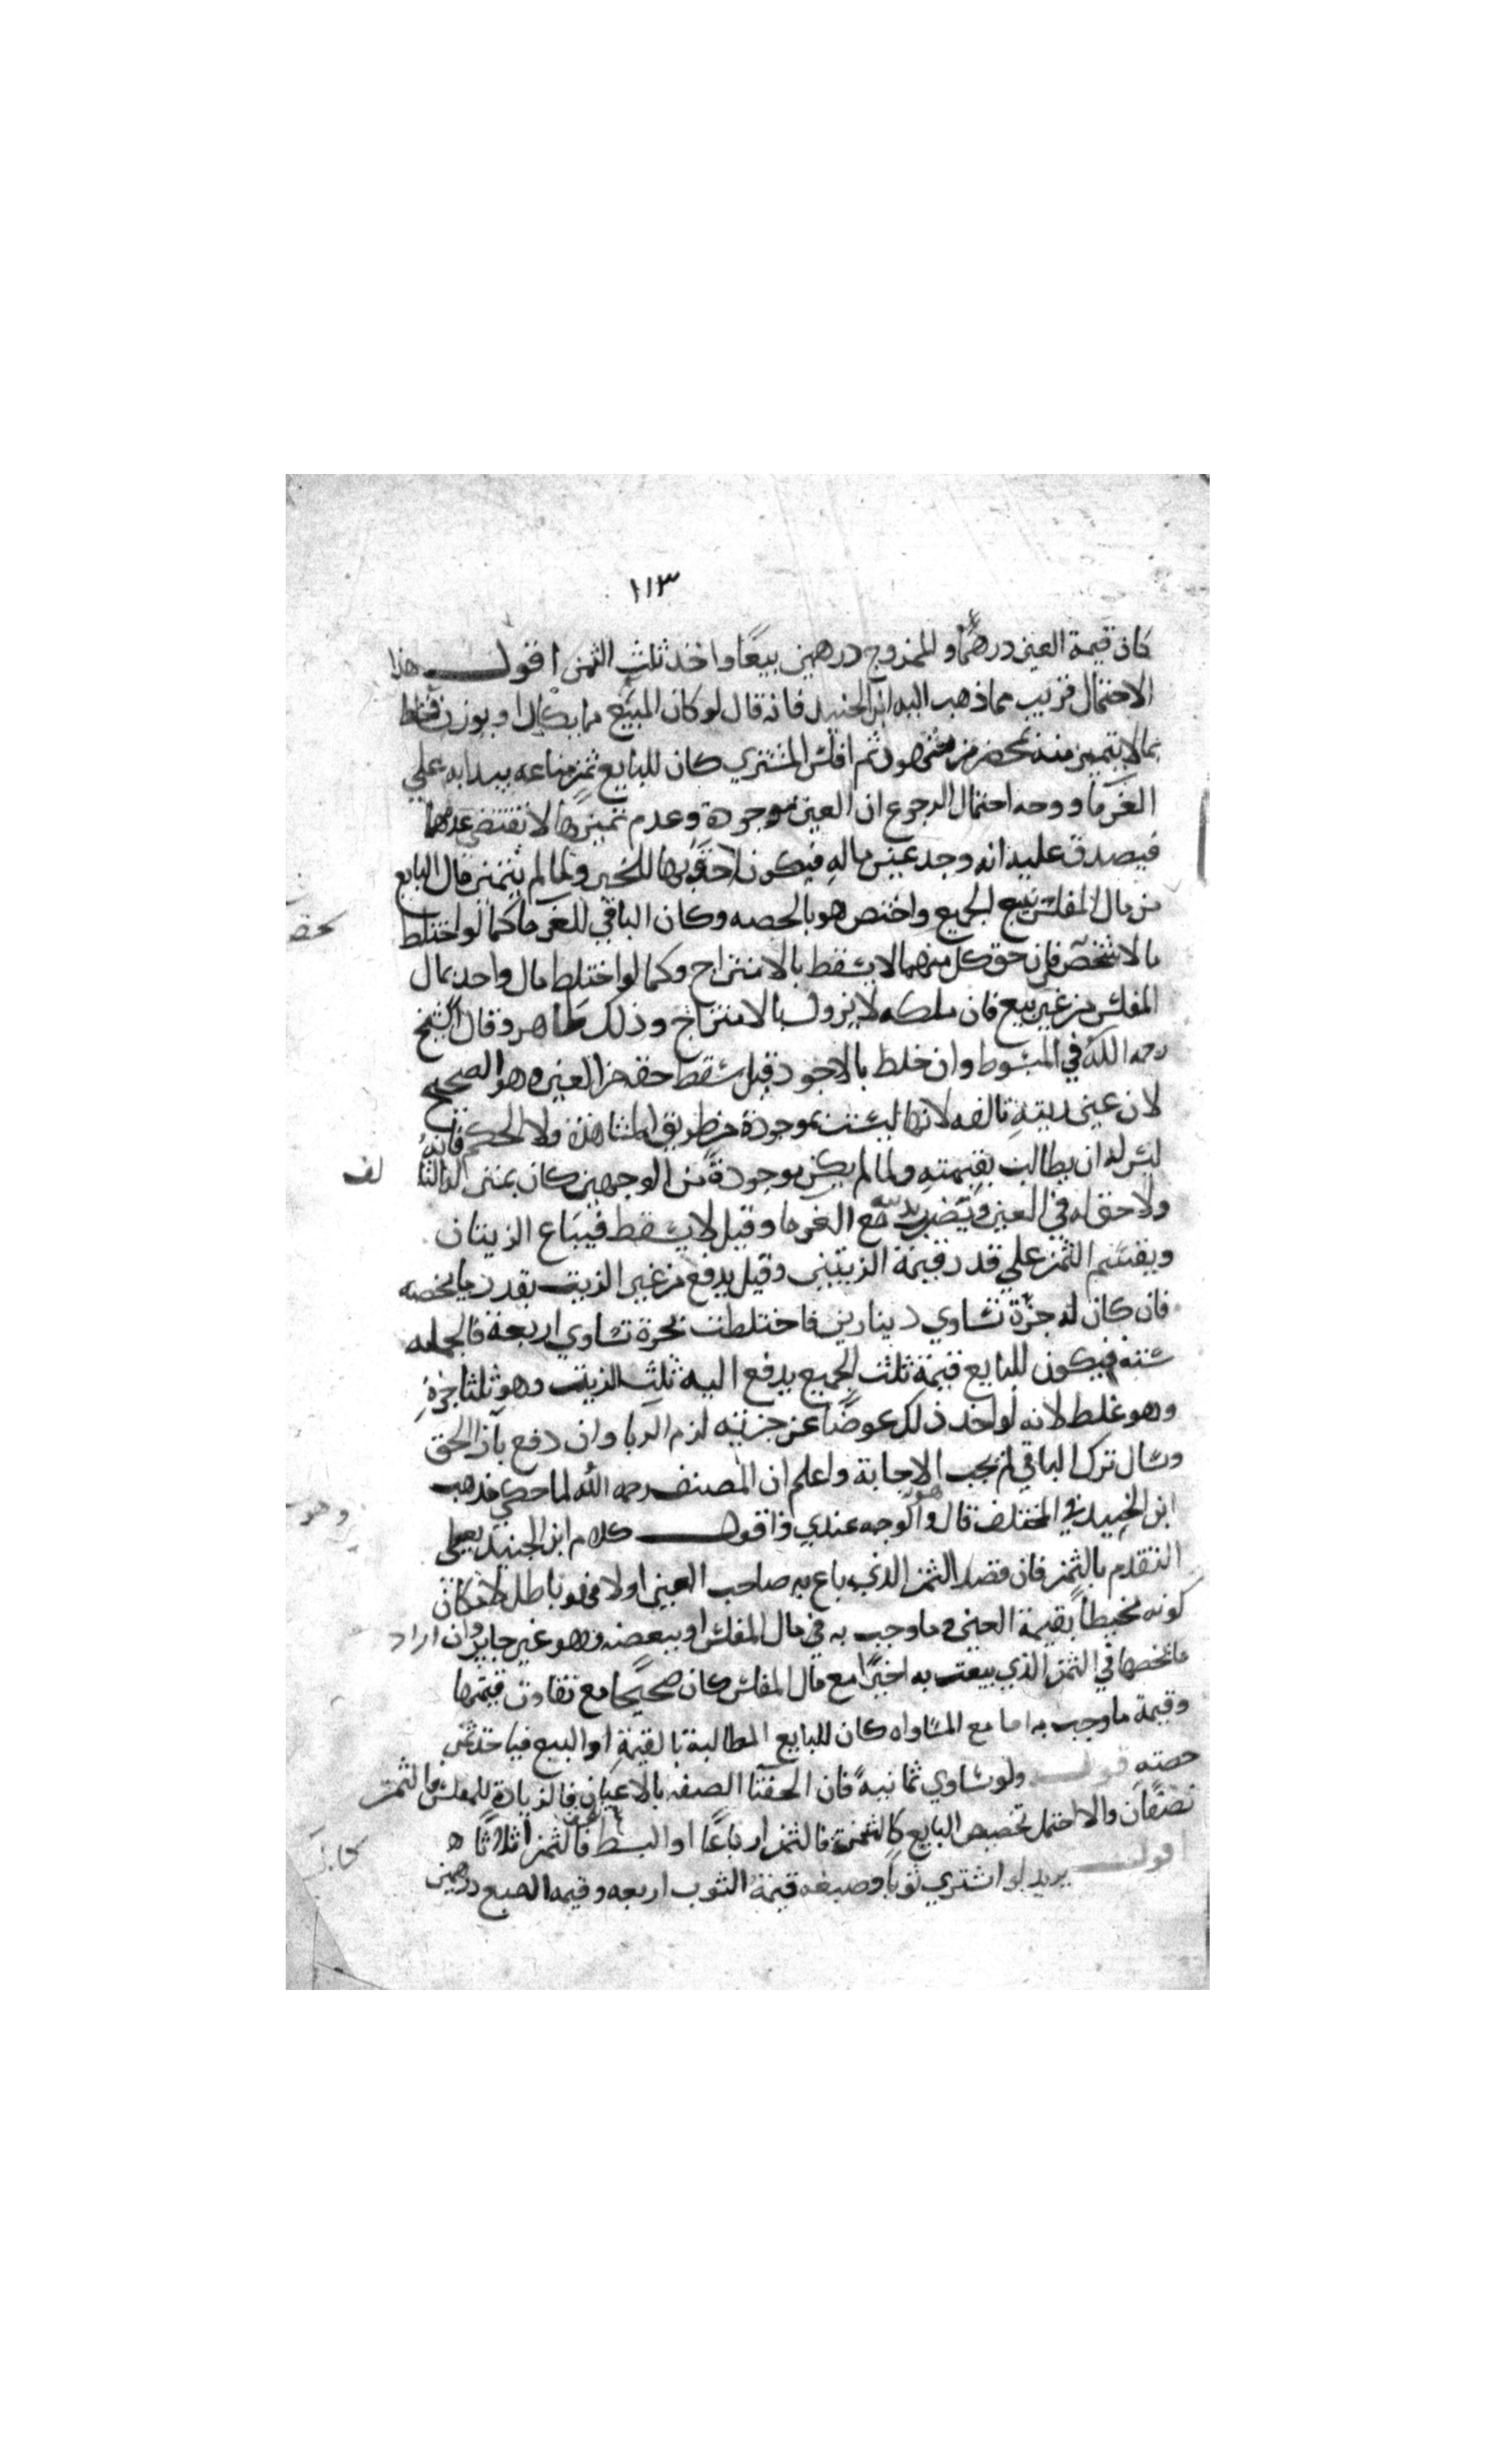 ١١٣
كان قيمة العين درهما والممزوج درهمين بيعا واخذ ثلث الثمن اقول هذا
الاحتمال قريب مما ذهب اليه ابن الجنيد فانه قال لو كان المبيع مما يكال او يوزن فخلط
بما لا يتميز منه بمحضر من شهود ثم افلس المشتري كان للبايع ثمن متاعه يبدا به علي
الغرما ووجه احتمال الرجوع ان العين موجودة وعدم تميزها لا تقتضي عدمها
فيصدق عليه انه وجد عين ماله فيكون احق بها للخبر ولما لم يتميز مال البايع
من مال المفلس بيع الجميع واختص هو بالحصه وكان الباقي للغرما كما لو اختلط
مالا شخص فان حق كل منهما لا يسقط بالامتزاج وكما لو اختلط مال واحد بمال
المفلس من غير بيع فان ملكه لا يزول بالامتزاج وذلك ظاهر وقال الشيخ
رحمه الله في المبسوط وان خلط بالاجود قيل سقط حقه من العين وهو الصحيح
لان عين زيته تالفه لانها ليست بموجودة من طريق المشاهدة ولا الحكم فانه
ليس له ان يطالب بقيمته ولما لم يكن موجودة من الوجهين كان بمنزلة التالف
ولا حق له في العين ويضرب بدينه مع الغرما وقيل لا يسقط فيباع الزيتان
ويقتسم الثمن علي قدر قيمة الزيتين وقيل يدفع من غير الزيت بقدر ما يخصه
فان كان له جرة تساوي دينارين فاختلطت بجرة تساوي اربعة فالجمله
ستة فيكون للبايع قيمة ثلث الجميع يدفع اليه ثلث الزيت وهو ثلثا جرة
وهو غلط لانه لو اخذ ذلك عوضا عن جرته لزم الربا وان دفع بازا الحق
وسال ترك الباقي لم يجب الاجابة واعلم ان المصنف رحمه الله لما حكي مذهب
ابن الجنيد في المختلف قال والوجه عندي ذا اقول كلام ابن الجنيد يعطي
التقدم بالثمن فان قصد الثمن الذي باع به صاحب العين اولا فهو باطل لامكان
كونه محيطا بقيمة العين وما وجب به في مال المفلس او ببعضه وهو غير جايز وان اراد
ما يخصها في الثمن الذي بيعت به اخيرا مع مال المفلس كان صحيحا مع تفاوت قيمتها
وقيمة ما وجب به اما مع المساواه كان للبايع المطالبة بالقيمة او البيع فياخذ ثمن
حصته قوله ولو تساوي ثمانية فان الحقنا الصفه بالاعيان فالزيادة للمفلس فالثمن
نصفان والا احتمل تخصيص البايع كالثمن فالثمن ارباعا او البسط فالثمن اثلاثا ه
اقول يريد لو اشتري ثوبا وصبغه قيمة الثوب اربعه وقيمه الصبغ درهمين